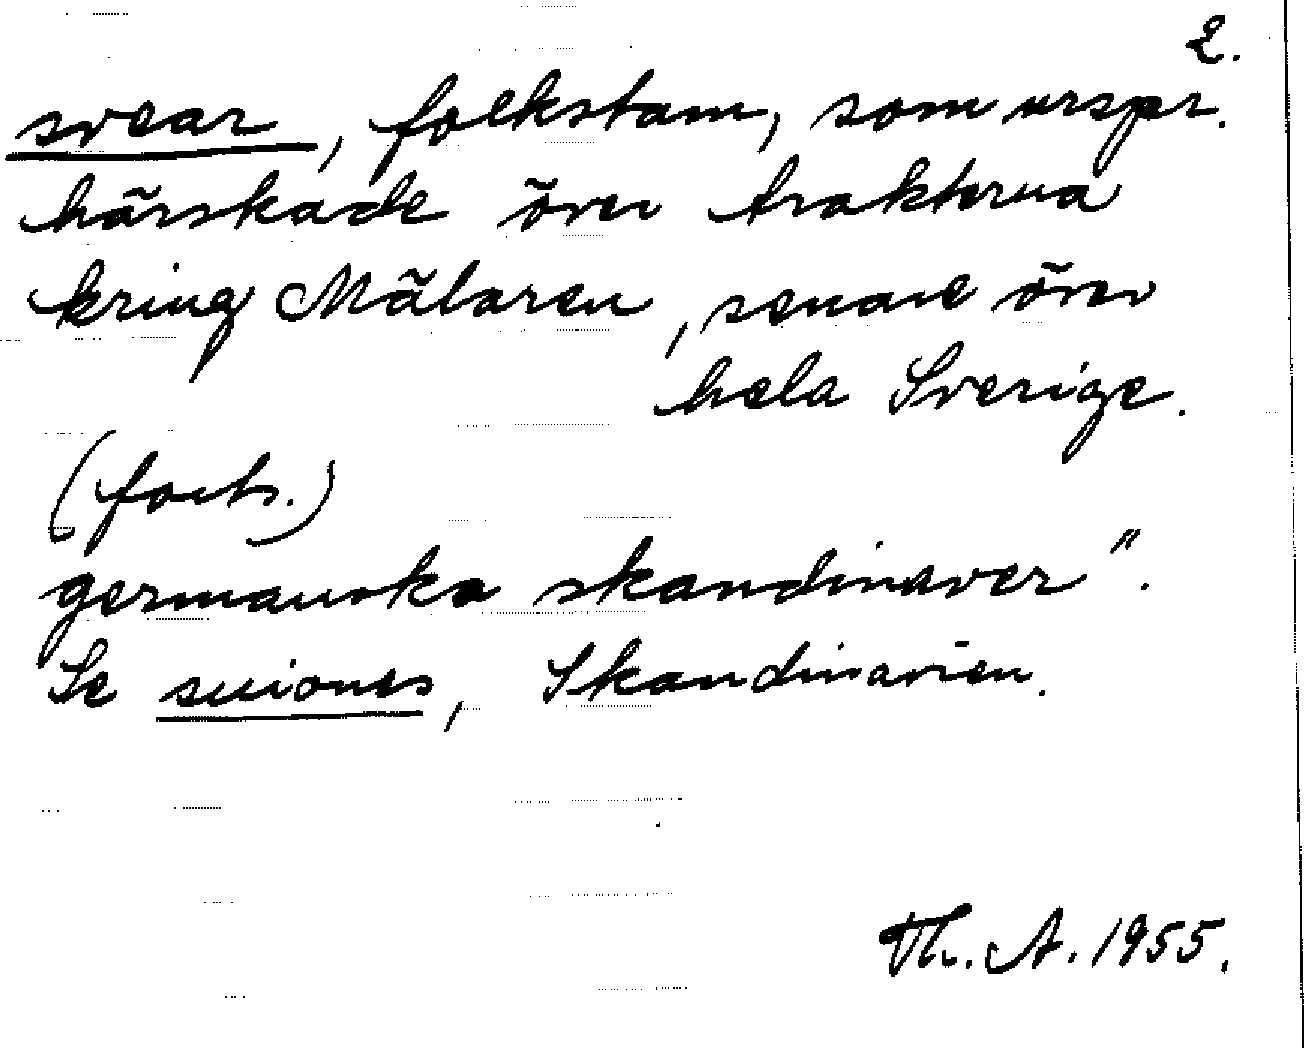 2.
svear, folkstam, som urspr.
härskade över trakterna
kring Mälaren, senare över
hela Sverige.
(forts.)
germanska skandinaver".
Se suiones, Skandinavien.
Th. A. 1955.